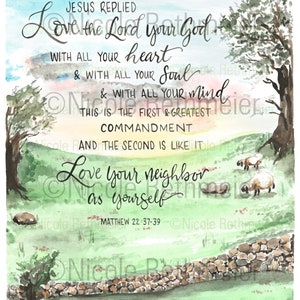 JESUS REPLIED
Love the Lord your God
WITH ALL YOUR heart
& WITH ALL YOUR Soul
& WITH ALL YOUR mind
THIS IS THE FIRST & GREATEST
COMMANDMENT
AND THE SECOND IS LIKE IT
Love your neighbor
as yourself
MATTHEW 22:37-39
©Nicole Bethmeier